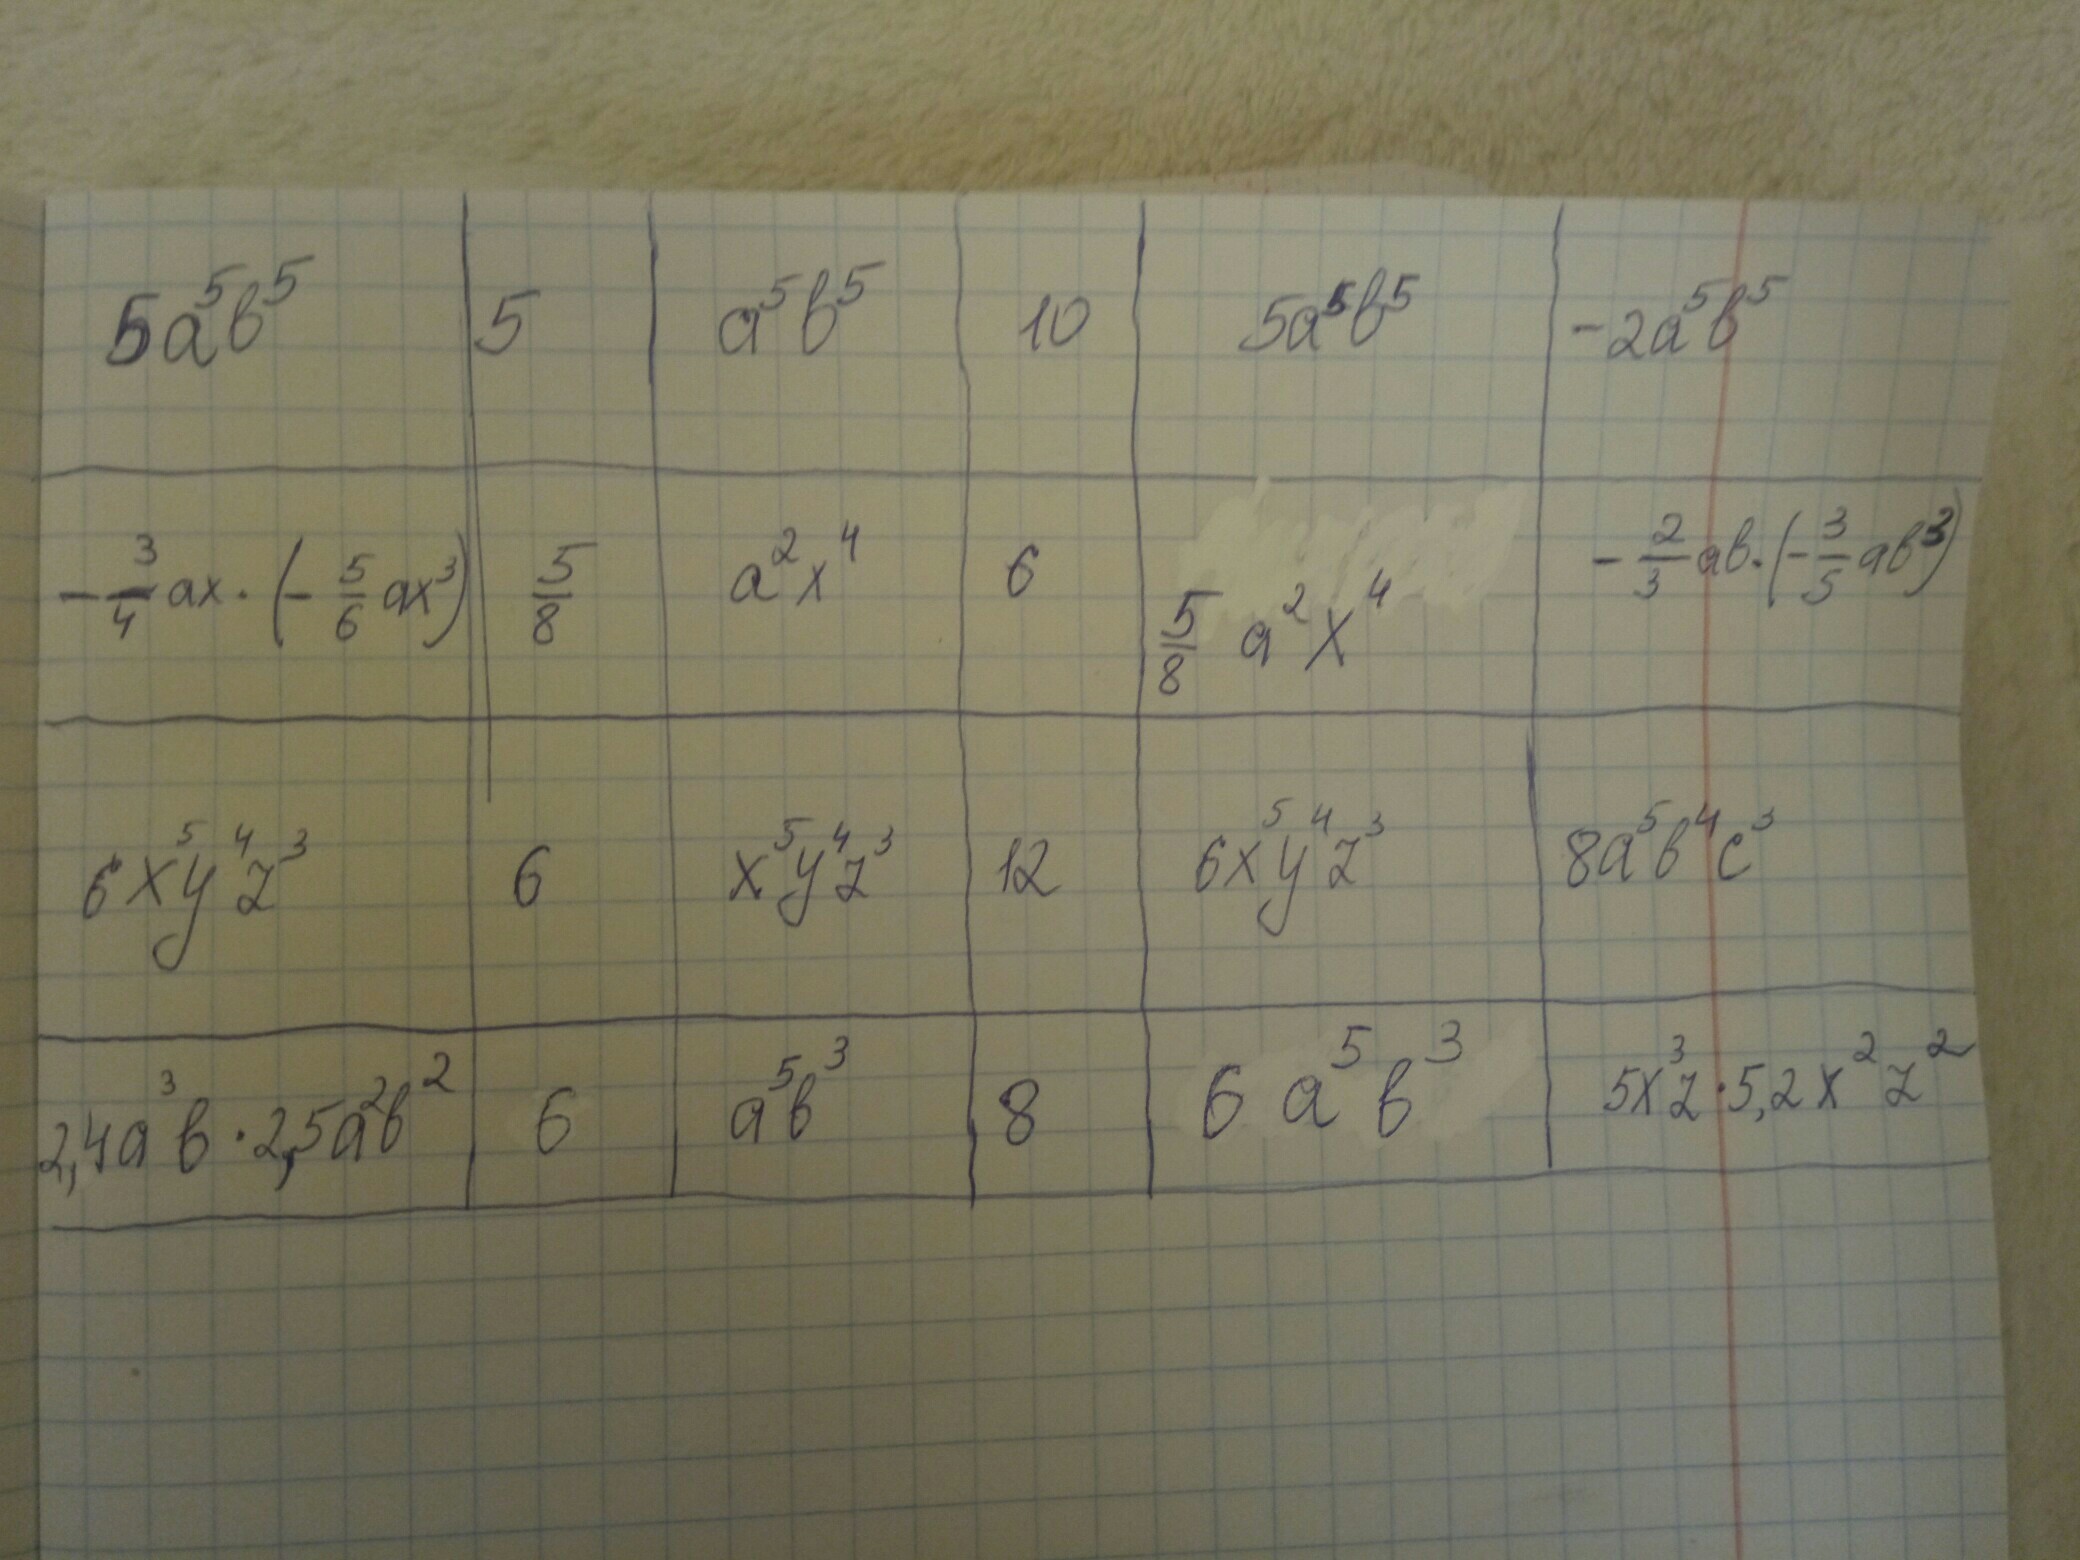 5a⁵b⁵ | 5 | a⁵b⁵ | 10 | 5a⁵b⁵ | -2a⁵b⁵
-3/4 ax · (-5/6 ax³) | 5/8 | a²x⁴ | 6 | 5/8 a²x⁴ | -2/3 ab · (-3/5 ab³)
6x⁵y⁴z³ | 6 | x⁵y⁴z³ | 12 | 6x⁵y⁴z³ | 8a⁵b⁴c³
2,4a³b · 2,5a²b² | 6 | a⁵b³ | 8 | 6a⁵b³ | 5x³z · 5,2x²z²